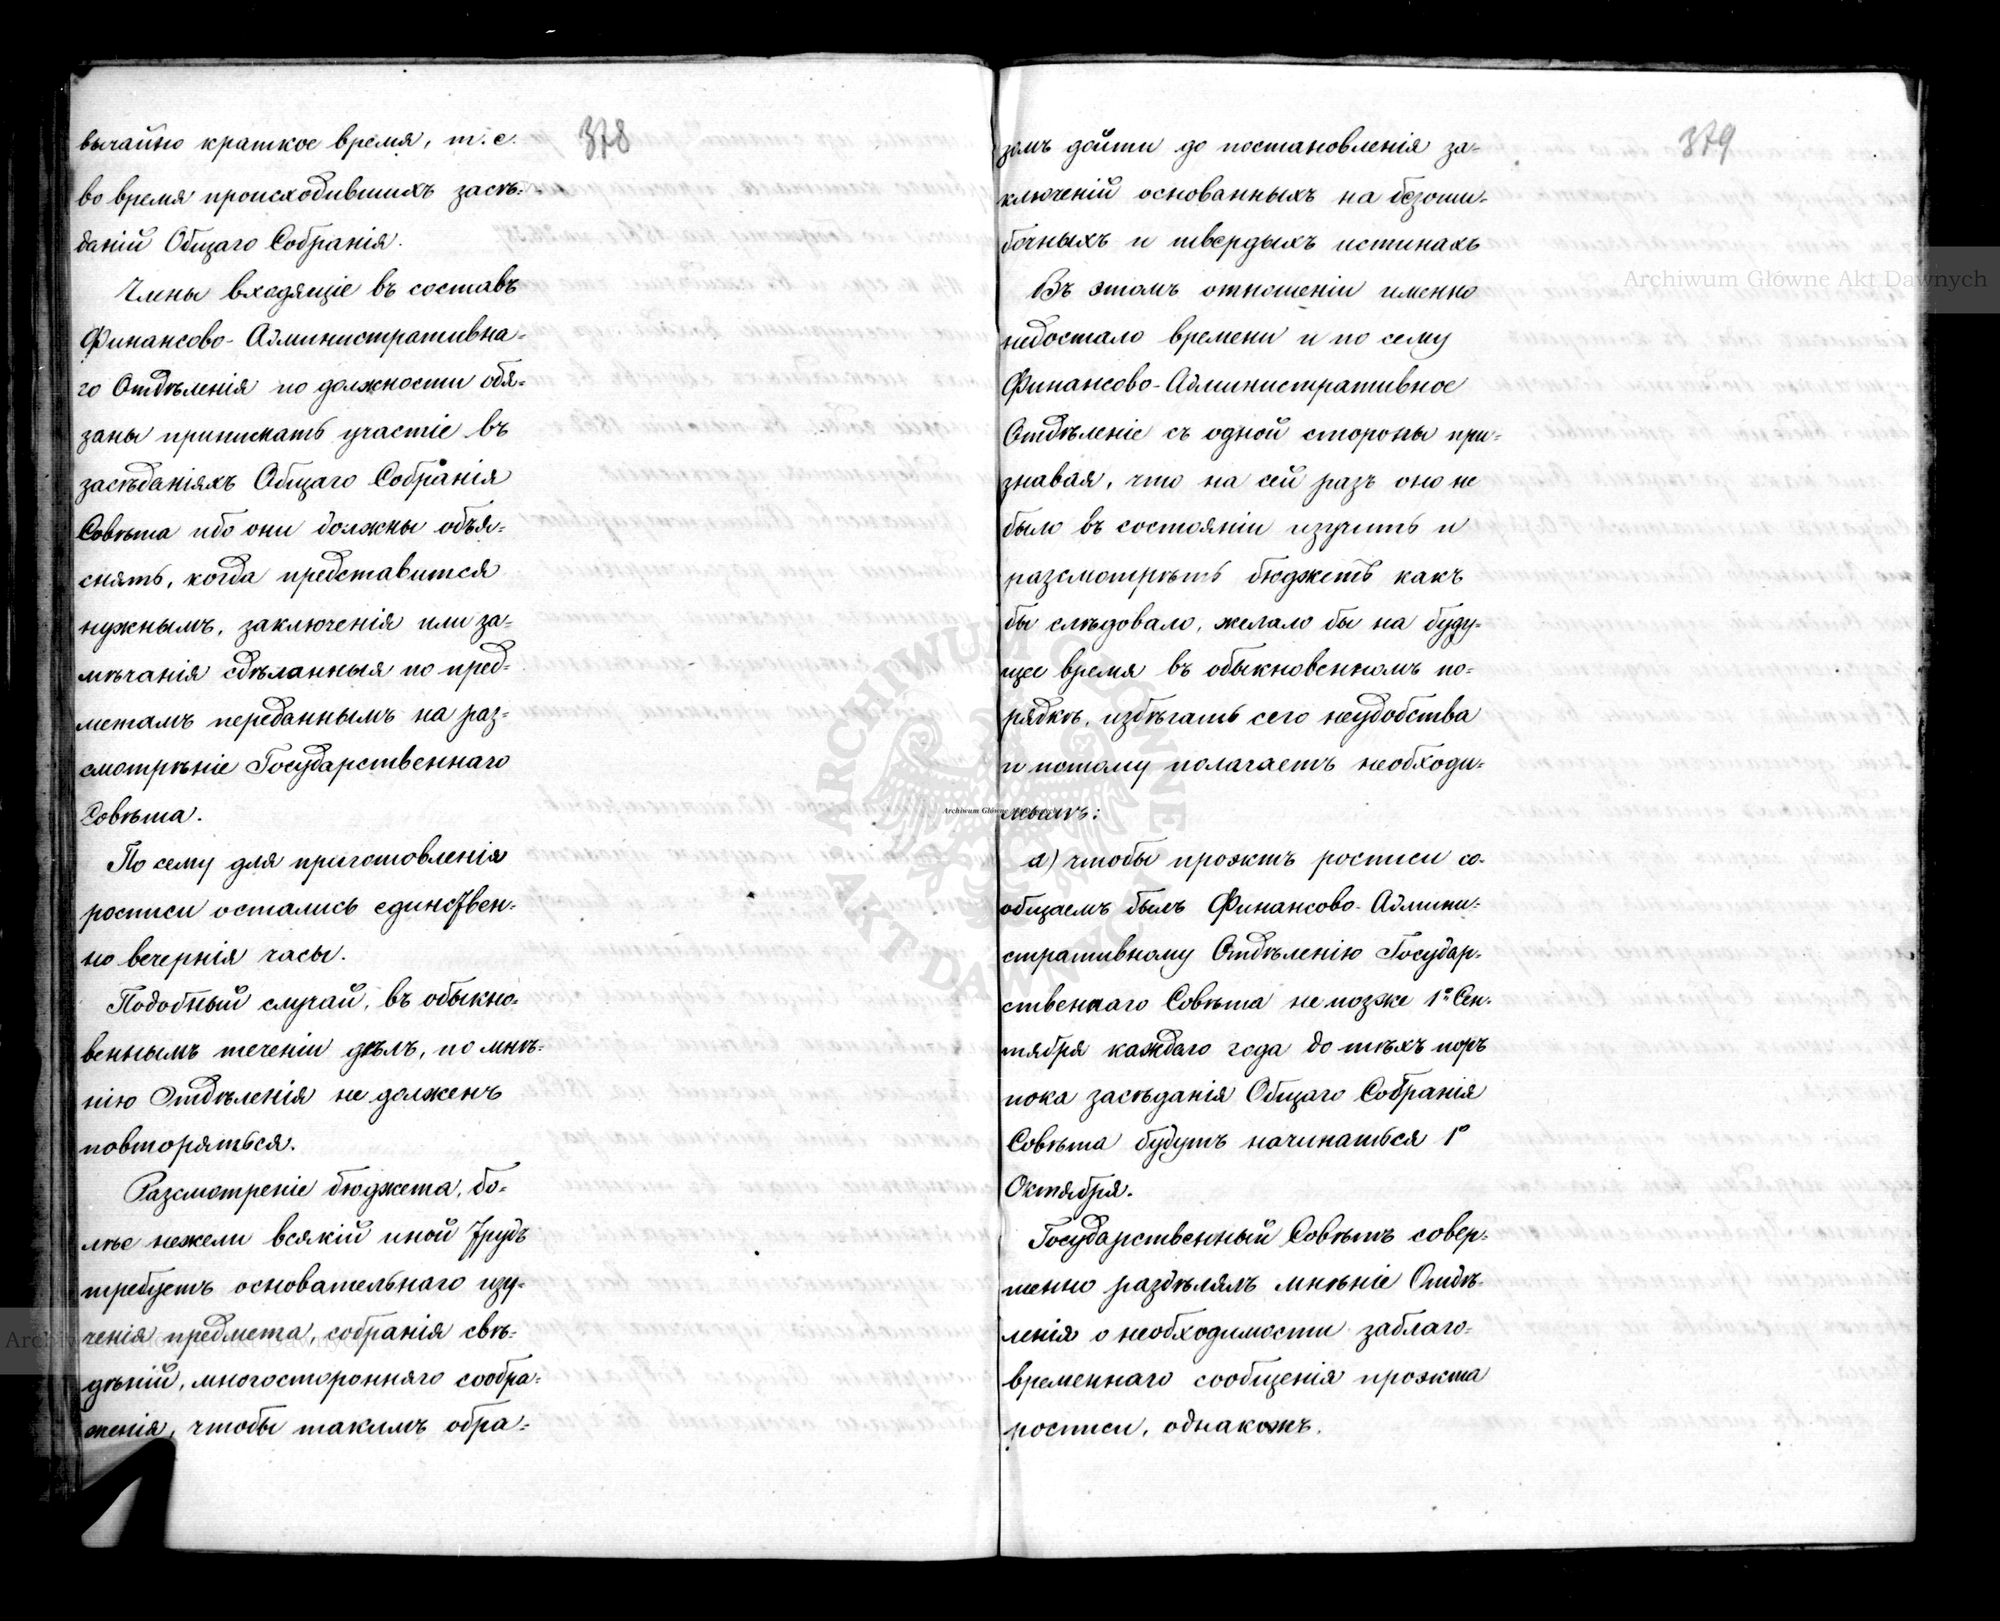 378
вычайно краткое время, т. е.
во время происходившихъ засѣ-
даній Общаго Собранія.
Члены входящіе въ составъ
Финансово-Административна-
го Отдѣленія по должности обя-
заны принимать участіе въ
засѣданіяхъ Общаго Собранія
Совѣта ибо они должны объя-
снять, когда представится
нужнымъ, заключенія или за-
мѣчанія сдѣланныя по пред-
метамъ переданнымъ на раз-
смотрѣніе Государственнаго
Совѣта.
По сему для приготовленія
росписи остались единствен-
но вечернія часы.
Подобный случай, въ обыкно-
веннымъ теченіи дѣлъ, по мнѣ-
нію Отдѣленія не долженъ
повторяться.
Разсмотреніе бюджета, бо-
лѣе нежели всякій иной трудъ
требуетъ основательнаго изу-
ченія предмета, собранія свѣ-
дѣній, многосторонняго сообра-
женія, чтобы такимъ обра-
379
зомъ дойти до постановленія за-
ключеній основанныхъ на безоши-
бочныхъ и твердыхъ истинахъ
Въ этомъ отношеніи именно
недостало времени и по сему
Финансово-Административное
Отдѣленіе съ одной стороны при-
знавая, что на сей разъ оно не
было въ состояніи изучить и
разсмотрѣть бюджетъ какъ
бы слѣдовало, желало бы на буду-
щее время въ обыкновенномъ по-
рядкѣ, избѣгать сего неудобства
и потому полагаетъ необходи-
мымъ:
а) чтобы проэктъ росписи со-
общаемъ былъ Финансово-Админи-
стративному Отдѣленію Государ-
ственнаго Совѣта не позже 1º Сен-
тября каждаго года до тѣхъ поръ
пока засѣданія Общаго Собранія
Совѣта будутъ начинаться 1º
Октября.
Государственный Совѣтъ совер-
шенно раздѣлялъ мнѣніе Отдѣ-
ленія о необходимости заблаго-
временнаго сообщенія проэкта
росписи, однакожъ.
Archiwum Główne Akt Dawnych
ARCHIWUM GŁÓWNE AKT DAWNYCH
Archiwum Główne Akt Dawnych
Archiwum Główne Akt Dawnych